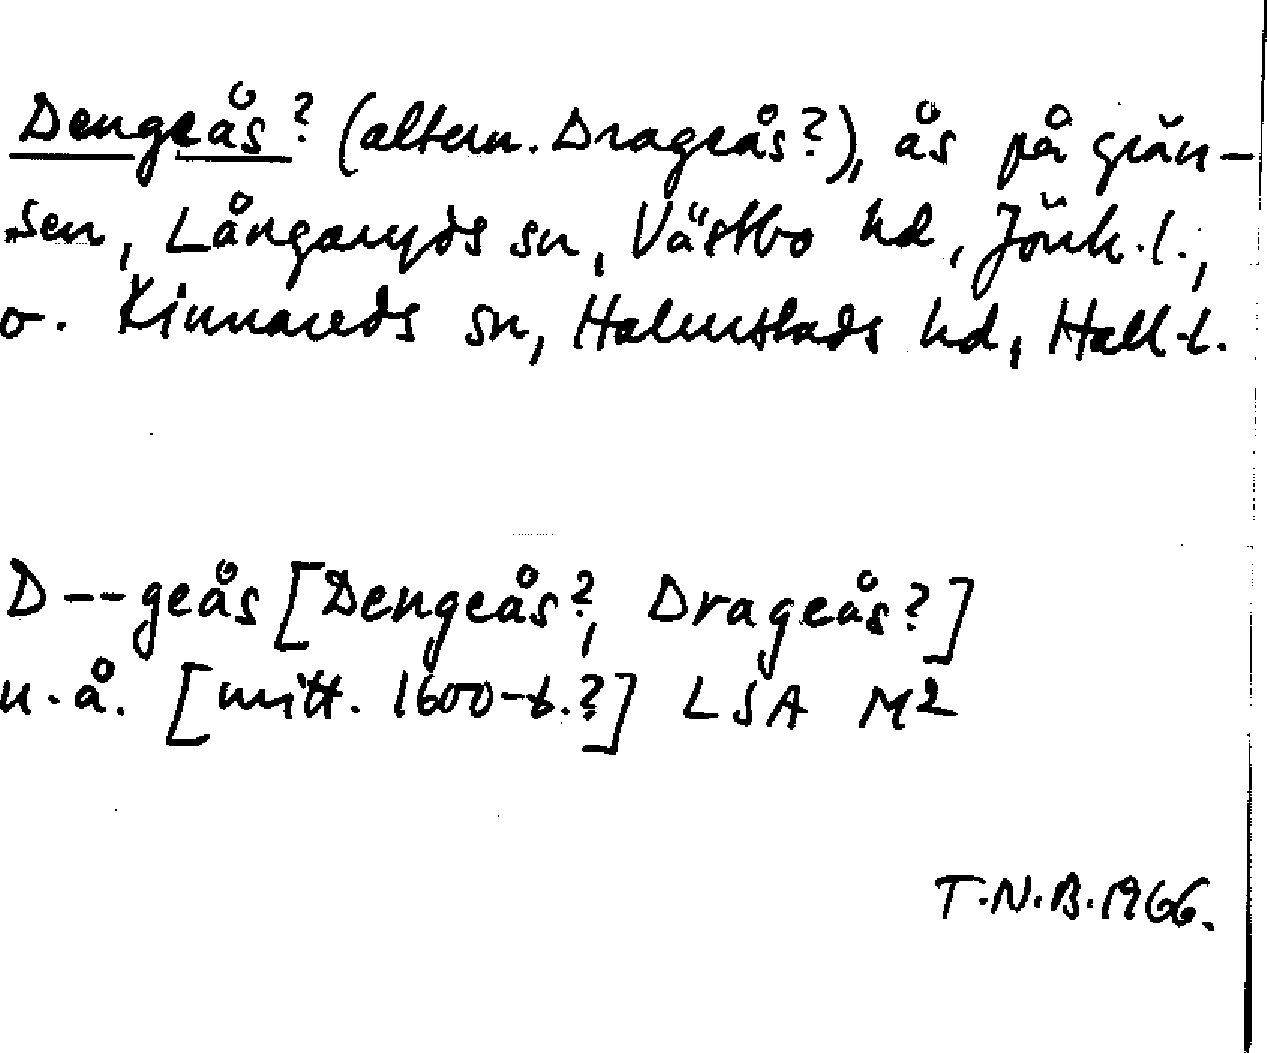 Dengeås? (altern. Drageås?), ås på grän-
sen, Långaryds sn, Västbo hd, Jönk.l.,
o. Kinnareds sn, Halmstads hd, Hall.l.
D--geås [Dengeås?, Drageås?]
u.å. [mitt. 1600-t.?] LSA M2
T.N.B.1966.